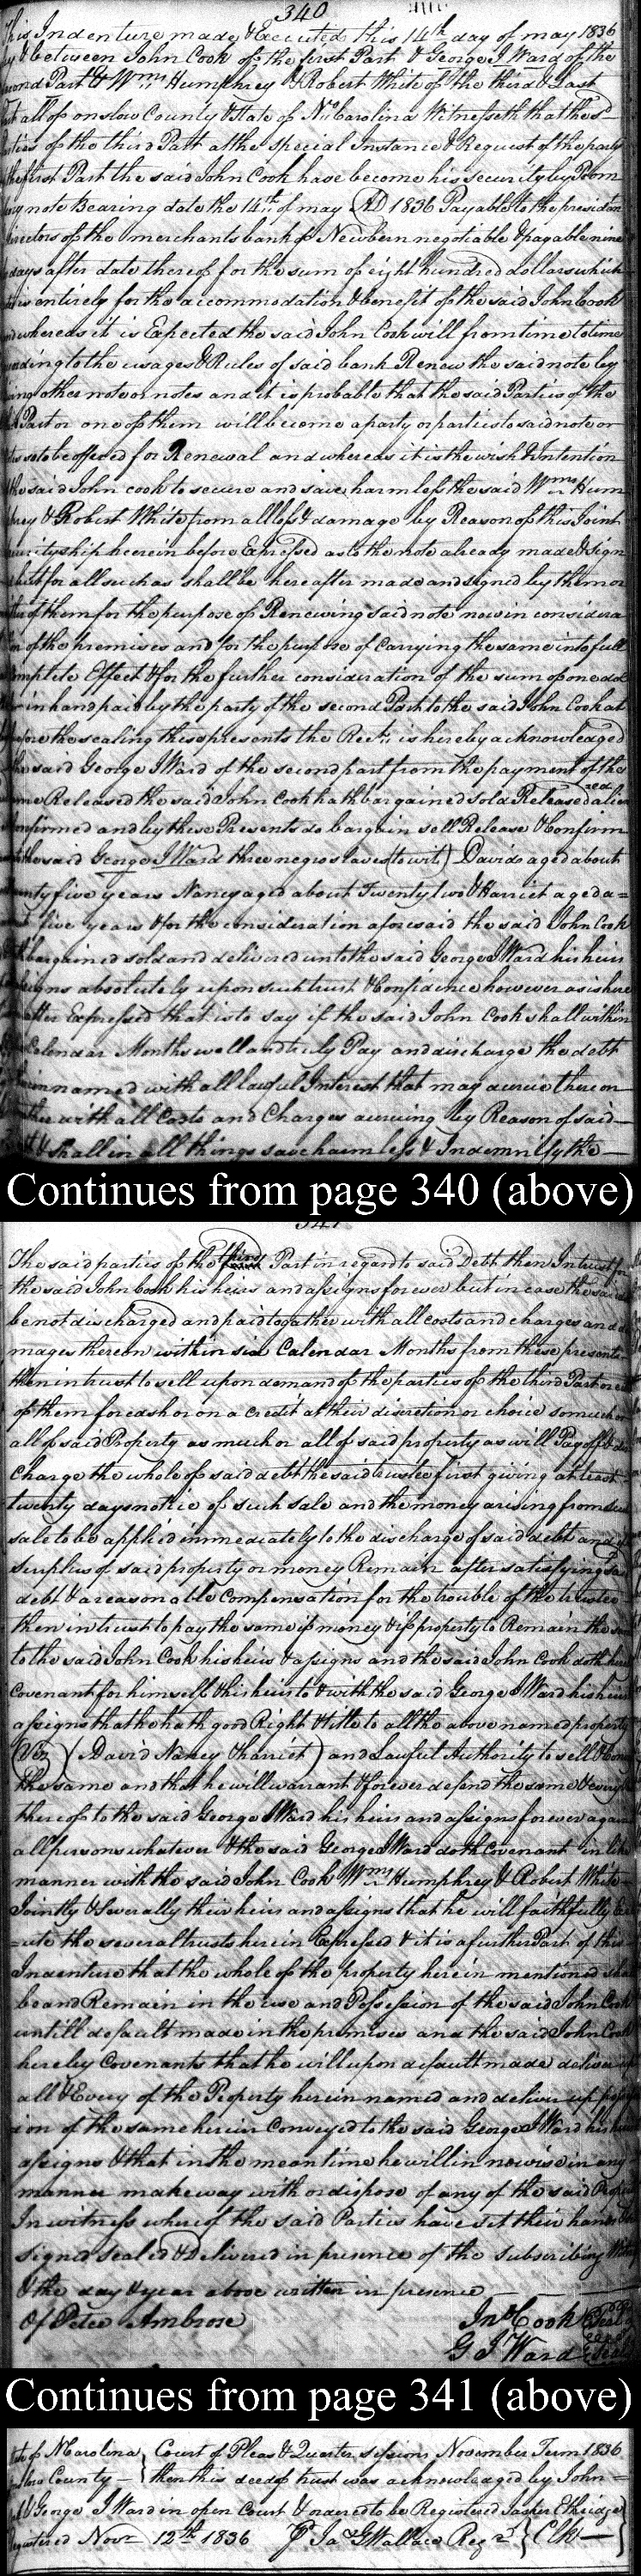 340
This Indenture made & Executed this 14th day of may 1836
by & between John Cook of the first Part & George J Ward of the
second Part & Wms Humphrey & Robert White of the third & Last
Part all of onslow County & State of No Carolina Witnesseth that the sd
Parties of the third Part at the special Instance & Request of the party
of the first Part the said John Cook have become his security by Prom
issory note Bearing date the 14th of may AD 1836 Payable to the president
Directors of the merchants bank of Newbern negotiable & payable nine
days after date thereof for the sum of eight hundred dollars which
is entirely for the accommodation & benefit of the said John Cook
and whereas it is Expected the said John Cook will from time to time
according to the usages & Rules of said bank Renew the said note by
giving other note or notes and it is probable that the said Parties of the
Part or one of them will become a party or parties to said note or
notes so to be offered for Renewal and whereas it is the wish & Intention
of the said John cook to secure and save harmless the said Wms Hum
phrey & Robert White from all loss & damage by Reason of this Joint
securityship herein before Expressed as to the note already made & sign
ed but for all such as shall be hereafter made and signed by them or
either of them for the purpose of Renewing said note now in considera
tion of the premises and for the purpose of Carrying the same into full
complete Effect & for the further consideration of the sum of one dol
lar in hand paid by the party of the second Part to the said John Cook at
before the sealing these presents the Rect is hereby acknowledged
the said George J Ward of the second part from the payment of the
same Released the said John Cook hath bargained sold Released alien
ed
confirmed and by these Presents do bargain sell Release & Confirm
unto the said George J Ward three negro slaves (to wit) David aged about
twenty five years Nancy aged about Twenty two & Harriet aged a=
bout five years & for the consideration aforesaid the said John Cook
hath bargained sold and delivered unto the said George J Ward his heirs
assigns absolutely upon such trust & Confidence however as is here
after Expressed that is to say if the said John Cook shall within
Calendar Months well and truly Pay and discharge the debt
herein named with all lawful Interest that may accrue thereon
together with all Costs and Charges accruing by Reason of said
& shall in all things save harmless & Indemnify the
Continues from page 340 (above)
341
The said parties of the third Part in regard to said Debt then In trust for
the said John Cook his heirs and assigns forever but in case the said
be not discharged and paid together with all costs and charges and da
mages thereon within six Calendar Months from these presents
then in trust to sell upon demand of the parties of the third Part or either
of them for cash or on a credit at their discretion or choice so much or
all of said Property as much or all of said property as will Pay off & dis
charge the whole of said debt the said trustee first giving at least
twenty days notice of such sale and the money arising from such
sale to be applied immediately to the discharge of said debt and if
surplus of said property or money Remain after satisfying said
debt & a reasonable compensation for the trouble of the trustee
then in trust to pay the same if money & if property to Remain the same
to the said John Cook his heirs & assigns and the said John Cook doth here
Covenant for himself & his heirs to & with the said George J Ward his heirs
assigns that he hath good Right & title to all the above named property
(Viz) (David Nancy & harriet) and Lawful Authority to sell & Convey
the same and that he will warrant & forever defend the same & every
thereof to the said George J Ward his heirs and assigns forever against
all persons whatever & the said George J Ward doth Covenant in like
manner with the said John Cook Wms Humphrey & Robert White
Jointly & Severally their heirs and assigns that he will faithfully Exe
=cute the several trusts herein Expressed & it is a further Part of this
Indenture that the whole of the property herein mentioned shall
be and Remain in the use and Possession of the said John Cook
untill default made in the premises and the said John Cook
hereby Covenants that he will upon default made deliver up
all & Every of the Property herein named and deliver up posess
ion of the same herein Conveyed to the said George J Ward his heirs
assigns & that in the mean time he will in nowise in any
manner make way with or dispose of any of the said Property
In witness whereof the said Parties have set their hands &
signed sealed & Delivered in presence of the subscribing Witness
& the day & year above written in presence
Of Peter Ambrose
Jno Cook (Seal)
G J Ward (Seal)
Continues from page 341 (above)
State of N Carolina } Court of Pleas & Quarter sessions November Term 1836
Onslow County } then this deed of trust was acknowledged by John
Cook & George J Ward in open Court & ordered to be Registered Jasper Etheridge
Registered Novr 12th 1836 Pr Jas G Wallace Regr } Clk